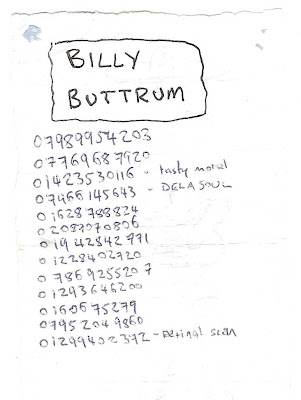 BILLY
BUTTRUM
07989954203
07769687920
01423530116 - tasty morsel
07466145643 - DELA SOUL
01628788824
02087070806
01942842771
01228402720
07869255207
01293646200
01606 75279
07952049860
01299402372 - Retinal scan